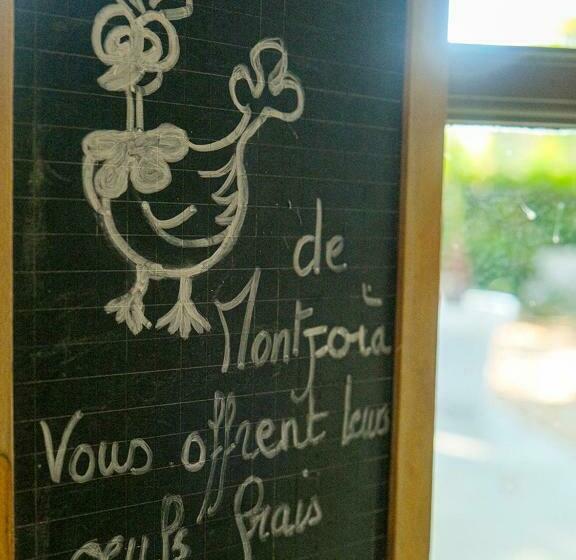 de
Montjoià
Vous offrent leurs
oeufs frais